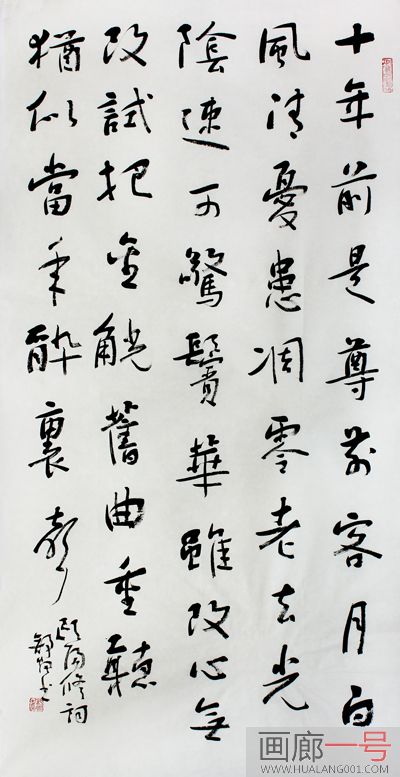 十年前是尊前客月白
風清憂患凋零老去光
陰速可驚鬢華雖改心無
改試把金觥舊曲重聽
猶似當年醉裏聲
歐陽修詞
画廊一号
WWW.HUALANG001.COM